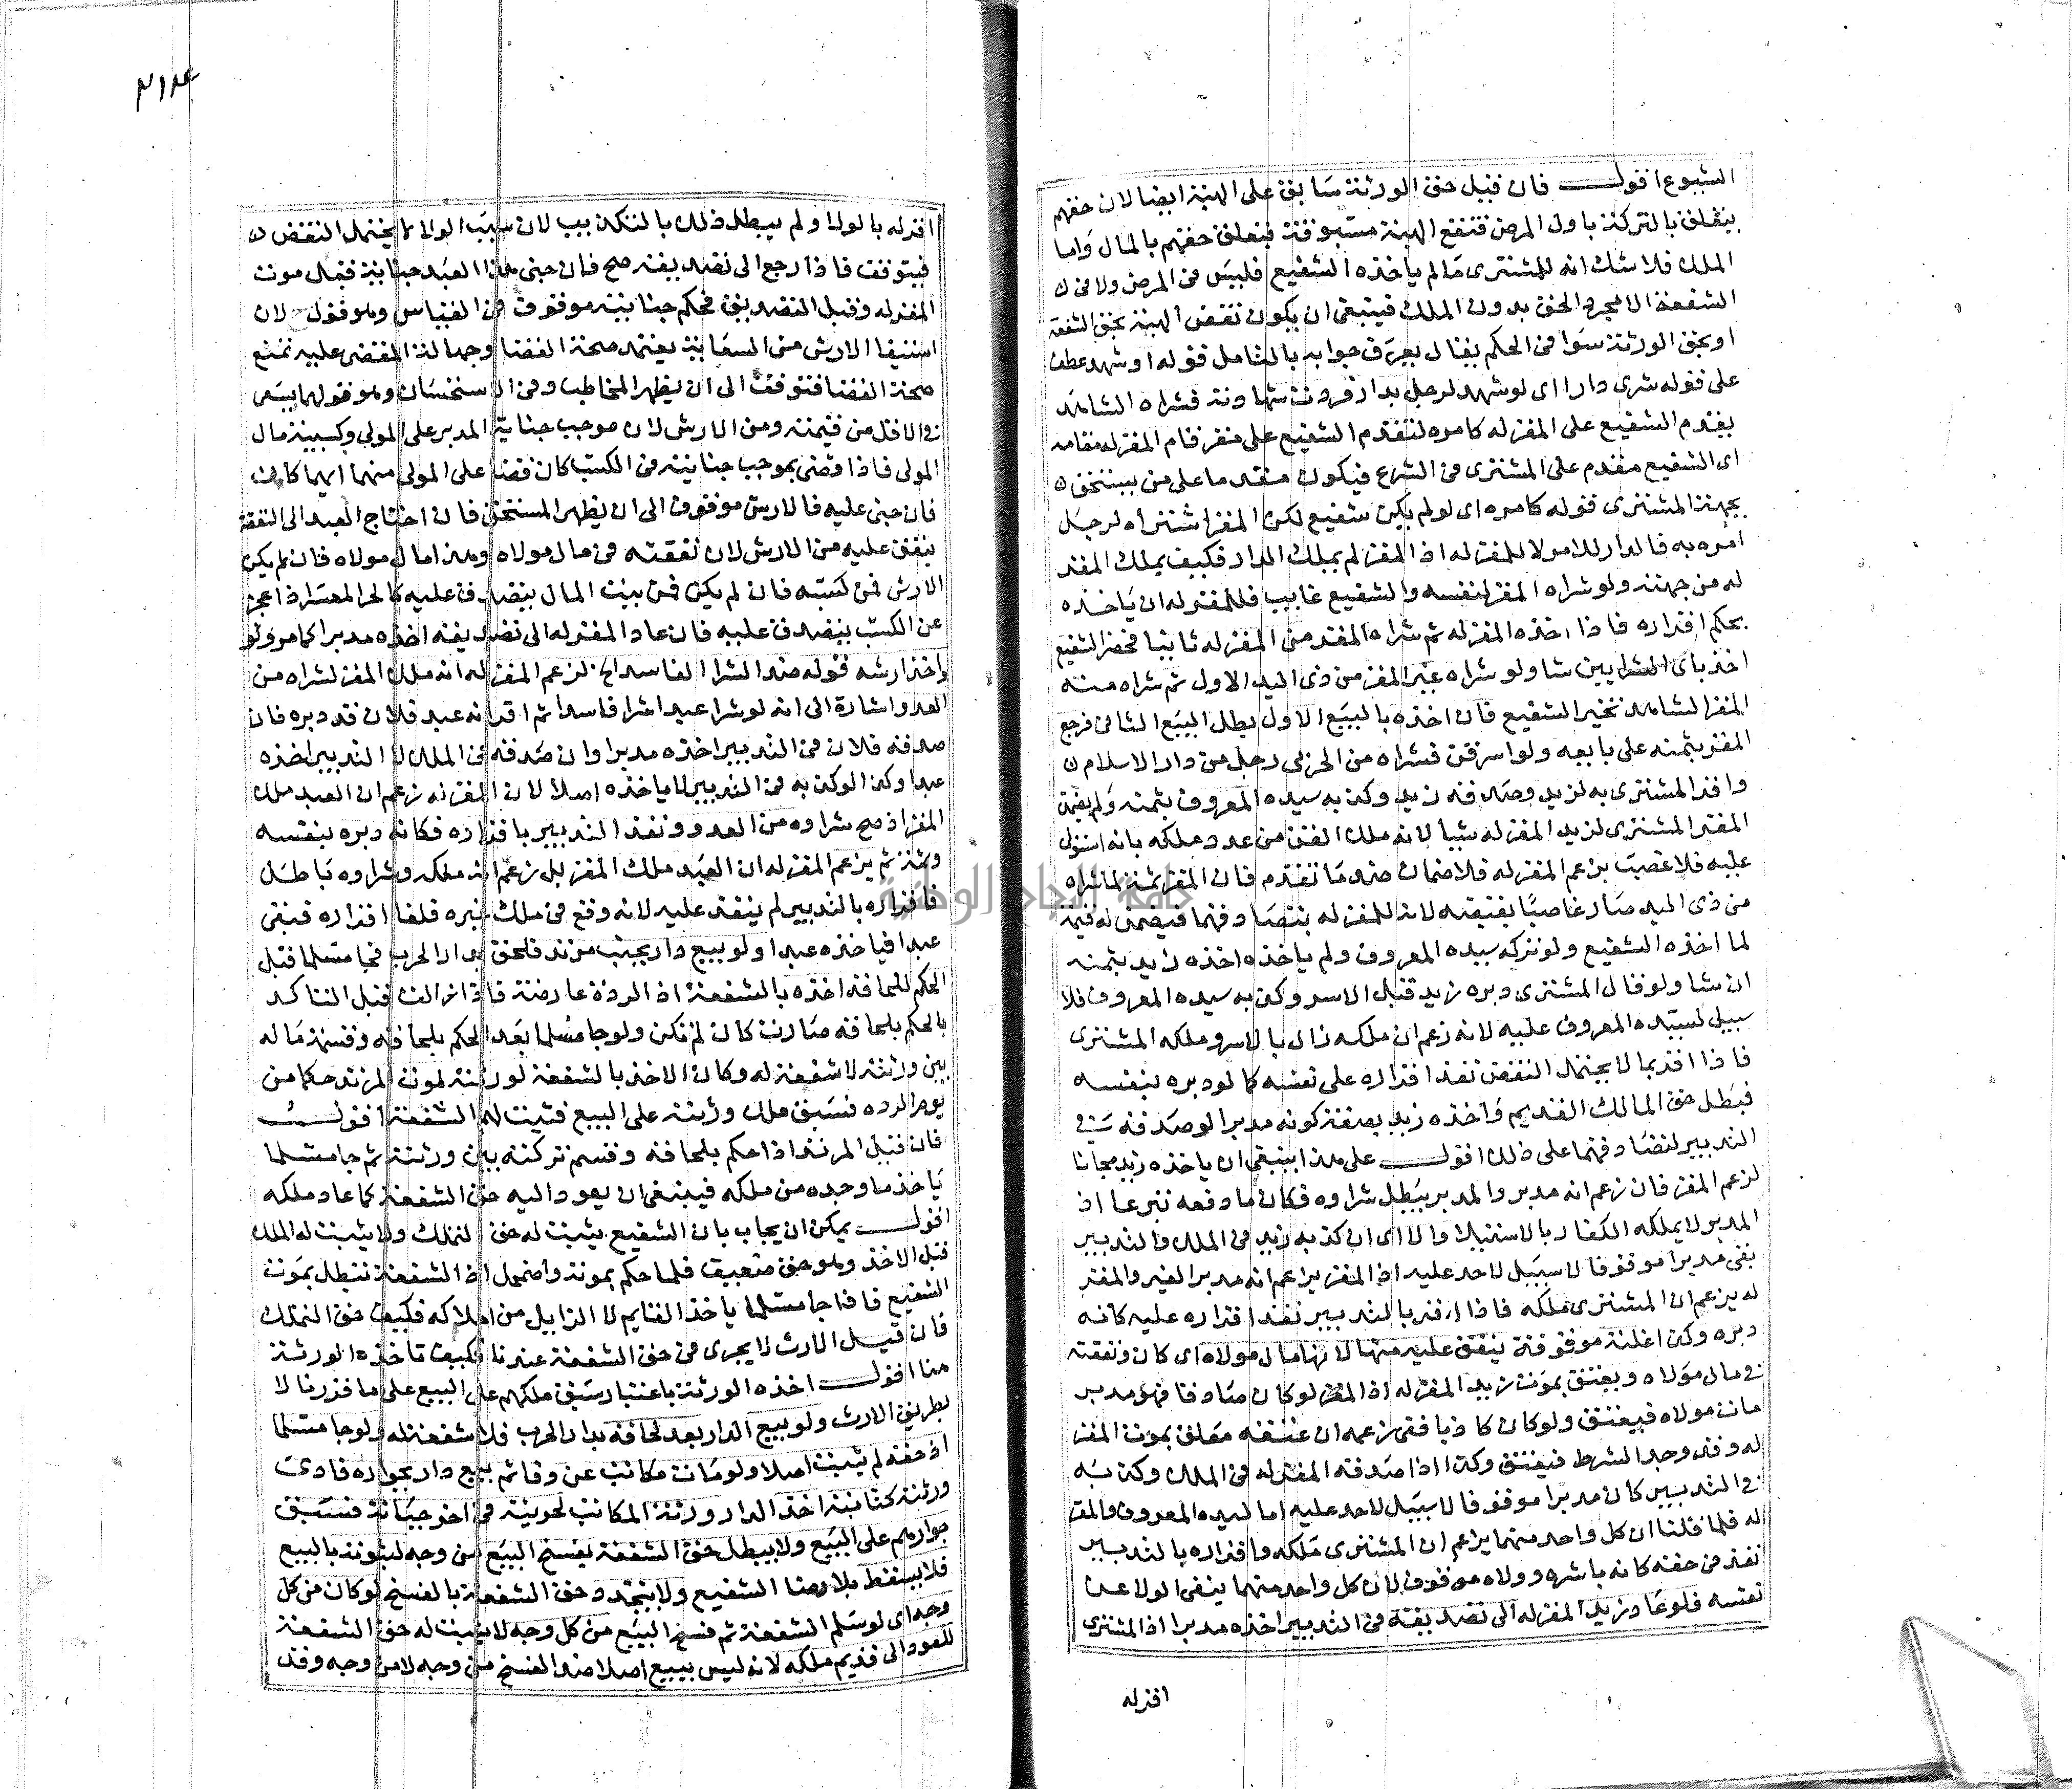 الشيوع اقول فان قيل حق الورثة سابق على الهبة ايضا لان حقهم
يتعلق بالتركة باول المرض فتقع الهبة مسبوقة بتعلق حقهم بالمال واما
الملك فلا شك انه للمشترى مالم ياخذه الشفيع فليس فى المرض ولا فى
الشفعة الا مجرد الحق بدون الملك فينبغى ان يكون نقض الهبة بحق الشفعة
او بحق الورثة سوا فى الحكم يقال يعرف جوابه بالتامل قوله او شهد عطف
على قوله شرى دارا اى لو شهد لرجل بدار فردت شهادته فشراه الشاهد
يقدم الشفيع على المقر له كامره لتقدم الشفيع على مقر قام المقر له مقامه
اى الشفيع مقدم على المشترى فى الشرع فيكون متقدما على من يستحق
بجهة المشترى قوله كامره اى لو لم يكن شفيع لكن المقر اشتراه لرجل
امره به فالدار للامر لا للمقر له اذ المقر لم يملك الدار فكيف يملك المقر
له من جهته ولو شراه المقر لنفسه والشفيع غايب فللمقر له ان ياخذه
بحكم اقراره فاذا اخذه المقر له ثم شراه المقر من المقر له ثانيا فحضر الشفيع
اخذ باى الشرايين شا ولو شراه غير المقر من ذى اليد الاول ثم شراه منه
المقر الشاهد تخير الشفيع فان اخذه بالبيع الاول بطل البيع الثانى فرجع
المقر بثمنه على بايعه ولو اسر قن فشراه من الحربى رجل من دار الاسلام
واقر المشترى به لزيد وصدقه زيد وكذبه سيده المعروف بثمنه ولم يضمن
المقر المشترى لزيد المقر له شيا لانه ملك القن من عدو ملكه بانه استولى
عليه فلا غصب بزعم المقر له فلا ضمان ضد ما تقدم فان المقر ثمة لما شراه
من ذى اليد صار غاصبا بقبضه لانه للمقر له بتصادقهما فيضمن له قيمته
لما اخذه الشفيع ولو تركه سيده المعروف ولم ياخذه اخذه زايد بثمنه
ان شا ولو قال المشترى دبره زيد قبل الاسر وكذبه سيده المعروف فلا
سبيل لسيده المعروف عليه لانه زعم ان ملكه زال بالاسر وملكه المشترى
فاذا اقر بما لا يحتمل النقض نفذ اقراره على نفسه كما لو دبره بنفسه
فبطل حق المالك القديم واخذه زيد بصفة كونه مدبرا لو صدقه فى
التدبير لتصادقهما على ذلك اقول على هذا ينبغى ان ياخذه زيد مجانا
لزعم المقر فان زعم انه مدبر والمدبر يبطل شراوه فكان ما دفعه تبرعا اذ
المدبر لا يملكه الكفار بالاستيلا والا اى ان كذبه زيد فى الملك والتدبير
بقى مدبرا موقوفا لا سبيل لاحد عليه اذ المقر يزعم انه مدبر الغير والمقر
له يزعم ان المشترى ملكه فاذا اقر بالتدبير نفذ اقراره عليه كانه
دبره وكذا غلته موقوفة ينفق عليه منها لانها مال مولاه اى كان ونفقته
فى مال مولاه ويعتق بموت زيد المقر له اذ المقر لو كان صادقا فهو مدبر
مات مولاه فيعتق ولو كان كاذبا ففى زعمه ان عتقه معلق بموت المقر
له وقد وجد الشرط فيعتق وكذا اذا صدقه المقر له فى الملك وكذبه
فى التدبير كان مدبرا موقوفا لا سبيل لاحد عليه اما لسيده المعروف والمقر
له فلما قلنا ان كل واحد منهما يزعم ان المشترى ملكه واقراره بالتدبير
نفذ فى حقه كانه باشره وولاه موقوف لان كل واحد منهما ينفى الولا عن
نفسه فلو عاد زيد المقر له الى تصديقه فى التدبير اخذه مدبرا اذ المشترى
اقر له
٣١٤
اقر له بالولا ولم يبطل ذلك بالتكذيب لان سبب الولا لا يحتمل النقض
فيتوقف فاذا رجع الى تصديقه صح فان جنى هذا العبد جناية قبل موت
المقر له وقبل التصديق فحكم جنايته موقوف فى القياس وهو قول ح لان
استيفا الارش من السعاية يعتمد صحة القضا وجهالة المقضى عليه تمنع
صحة القضا فتوقف الى ان يظهر المخاطب وفى الاستحسان وهو قولهما يسعى
فى الاقل من قيمته ومن الارش لان موجب جناية المدبر على المولى وكسبه مال
المولى فاذا قضى بموجب جنايته فى الكسب كان قضا على المولى منهما ايهما كان
فان جنى عليه فالارش موقوف الى ان يظهر المستحق فان احتاج العبد الى النفقة
ينفق عليه من الارش لان نفقته فى مال مولاه وهذا مال مولاه فان لم يكن
الارش فمن كسبه فان لم يكن فمن بيت المال يتصدق عليه كالحر المعسر اذا عجز
عن الكسب يتصدق عليه فان عاد المقر له الى تصديقه اخذه مدبرا كما مر ولو
واخذ ارشه قوله ضد الشرا الفاسد اى لزعم المقر له انه ملك المقر لشراه من
العدو اشارة الى انه لو شرا عبدا شرا فاسدا ثم اقر انه عبد فلان قد دبره فان
صدقه فلان فى التدبير اخذه مدبرا وان صدقه فى الملك لا التدبير اخذه
عبدا وكذا لو كذبه فى التدبير لا ياخذه اصلا لان المقر له زعم ان العبد ملك
المقر اذ صح شراوه من العدو ونفذ التدبير باقراره فكانه دبره بنفسه
وثمة لم يزعم المقر له ان العبد ملك المقر بل زعم انه ملكه وشراوه باطل
فاقراره بالتدبير لم ينفذ عليه لانه وقع فى ملك غيره فلغا اقراره فبقى
عبدا فياخذه عبدا ولو بيع دار بجنب مرتد فلحق بدار الحرب فجا مسلما قبل
الحكم للحاقه اخذه بالشفعة اذ الردة عارضة فاذا زالت قبل التاكد
بالحكم بلحاقه صارت كان لم تكن ولو جا مسلما بعد الحكم بلحاقه وقسمة ماله
بين ورثته لا شفعة له وكان الاخذ بالشفعة لورثته لموت المرتد حكما من
يوم الرده فسبق ملك ورثته على البيع فثبت لهم الشفعة اقول
فان قيل المرتد اذا حكم بلحاقه وقسم تركته بين ورثته ثم جا مسلما
ياخذ ما وجده من ملكه فينبغى ان يعود اليه حق الشفعة كما عاد ملكه
اقول يمكن ان يجاب بان الشفيع يثبت له حق التملك ولا يثبت له الملك
قبل الاخذ وهو حق ضعيف فلما حكم بموته واضمحل اذ الشفعة تبطل بموت
الشفيع فاذا جا مسلما ياخذ القايم لا الزايل من املاكه فكيف حق التملك
فان قيل الارث لا يجرى فى حق الشفعة عندنا فكيف تاخذه الورثة
هنا اقول اخذه الورثة باعتبار سبق ملكهم على البيع على ما قررنا لا
بطريق الارث ولو بيع الدار بعد لحاقه بدار الحرب فلا شفعة له ولو جا مسلما
اذ حقه لم يثبت اصلا ولو مات مكاتب عن وفا ثم بيع دار بجواره فادى
ورثته كتابته اخذ الدار ورثة المكاتب لحريته فى اخر حياته فسبق
جوارهم على البيع ولا يبطل حق الشفعة بفسخ البيع من وجه لثبوته بالبيع
فلا يسقط بلا رضا الشفيع ولا يتجدد حق الشفعة بالفسخ لو كان من كل
وجه اى لو سلم الشفعة ثم فسخ البيع من كل وجه لا يثبت له حق الشفعة
للعود الى قديم ملكه لانه ليس ببيع اصلا ضد الفسخ من وجه لا من وجه وقد